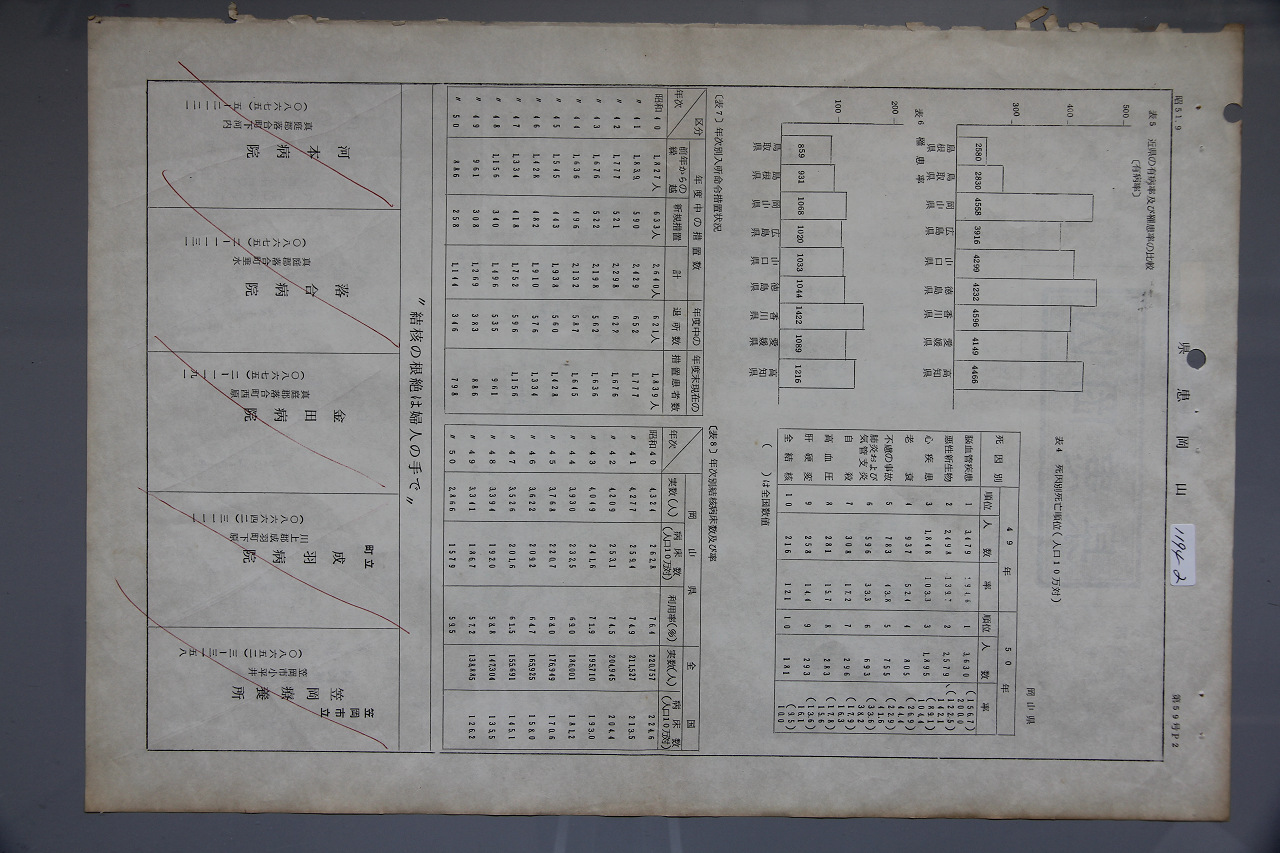 昭51.9
県 患 岡 山
1194-2
第59号P2
表5 近県の有病率及び罹患率の比較
(有病率)
500
400
300
2580 2830 4558 3916 4299 4232 4596 4149 4466
島根県 鳥取県 岡山県 広島県 山口県 徳島県 香川県 愛媛県 高知県
表6 罹患率
200
100
859 931 1068 1020 1033 1044 1422 1089 1216
鳥取県 島根県 岡山県 広島県 山口県 徳島県 香川県 愛媛県 高知県
表4 死因別死亡順位(人口10万対)
岡山県
死因別 49年 50年
順位 人数 率 順位 人数 率
脳血管疾患 1 3,479 194.6 1 3,630 200.0 (156.7)
悪性新生物 2 2,498 139.7 2 2,579 142.1 (122.5)
心疾患 3 1,848 103.3 3 1,895 104.4 (89.1)
老衰 4 937 52.4 4 805 44.4 (26.9)
不慮の事故 5 783 43.8 5 755 41.6
肺炎および気管支炎 6 596 33.3 6 693 38.2
自殺 7 308 17.2 7 296 16.3
高血圧 8 281 15.7 8 283 15.6 (17.8)
肝硬変 9 258 14.4 9 293 16.1 (13.6)
全結核 10 216 12.1 10 181 10.0 (9.5)
( )は全国数値
〔表7〕年次別入所命令措置状況
年次 区分 年度中の措置数 年度中の退所数 年度末現在の措置患者数
前年からの繰越 新規措置 計
昭和40 1,827人 633人 2,640人 621人 1,839人
〃 41 1,839 590 2,429 652 1,777
〃 42 1,777 521 2,298 622 1,676
〃 43 1,676 522 2,198 562 1,636
〃 44 1,636 496 2,132 587 1,645
〃 45 1,545 443 1,938 560 1,428
〃 46 1,428 482 1,910 576 1,334
〃 47 1,334 418 1,752 596 1,156
〃 48 1,156 340 1,496 535 961
〃 49 961 308 1,269 383 886
〃 50 886 258 1,144 346 798
〔表8〕年次別結核病床数及び率
年次 岡山県 全国
実数(人) 病床数(人口10万対) 利用率(%) 実数(人) 病床数(人口10万対)
昭和40 4,324 262.8 76.4 220,757 224.6
〃 41 4,277 259.4 74.9 211,527 213.5
〃 42 4,209 253.1 74.5 204,945 204.4
〃 43 4,049 241.6 71.9 195,710 193.0
〃 44 3,930 232.5 69.0 186,001 181.2
〃 45 3,768 220.7 68.0 176,949 170.6
〃 46 3,622 209.2 64.7 165,925 158.0
〃 47 3,526 201.6 61.5 155,691 145.1
〃 48 3,394 192.0 58.8 147,304 135.5
〃 49 3,341 186.7 57.2 138,885 126.2
〃 50 2,866 157.9 59.5
〃結核の根絶は婦人の手で〃
河本病院
真庭郡落合町下河内
落合病院
真庭郡落合町垂水
金田病院
真庭郡落合町西原
町立
成羽病院
川上郡成羽町下原
笠岡市立
笠岡療養所
笠岡市小平井